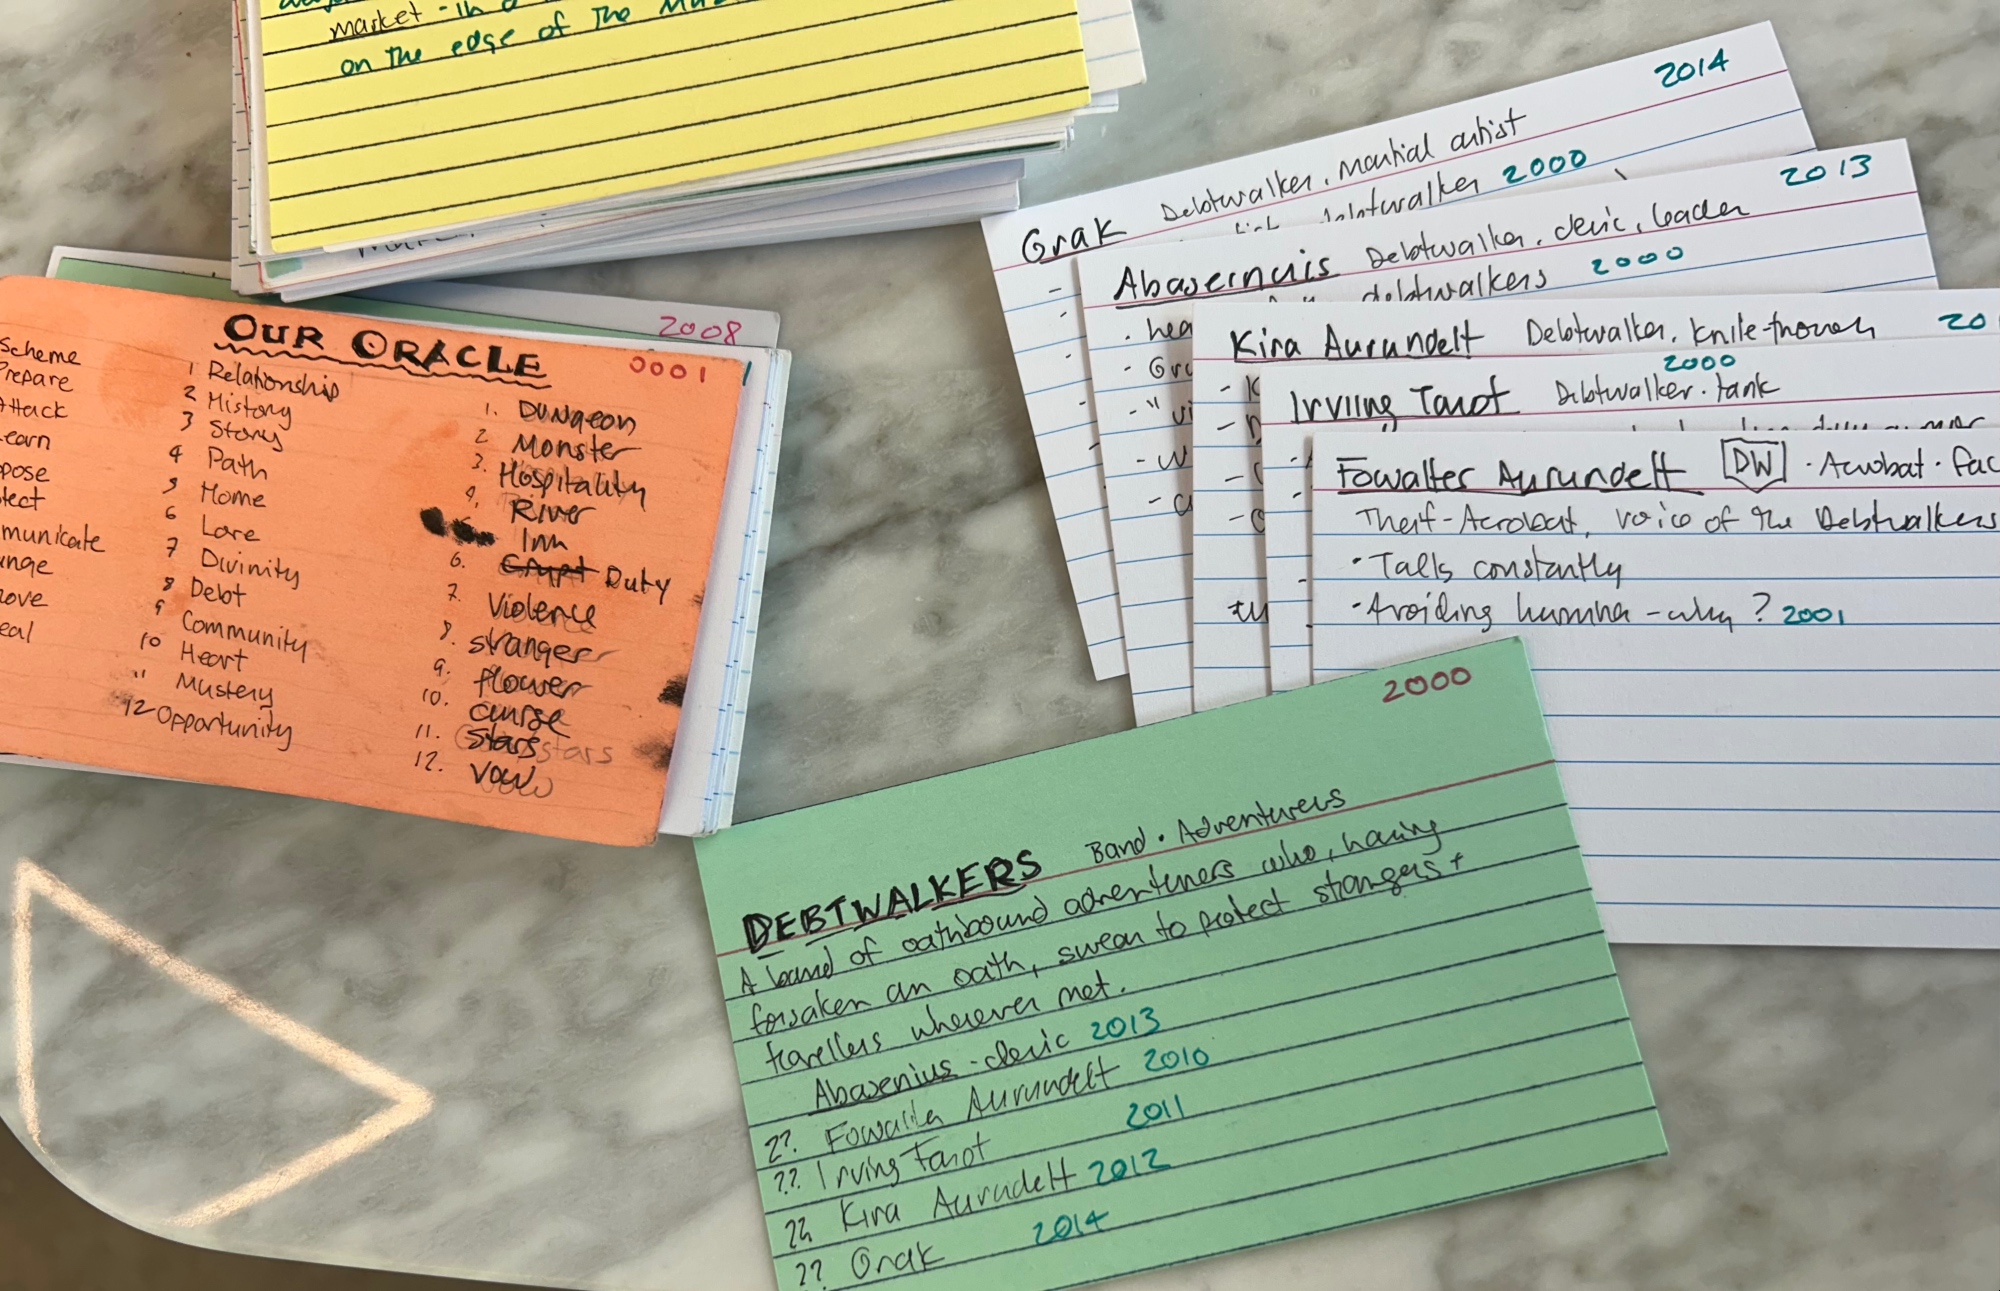 market - in a
on the edge of The
2008
OUR ORACLE 0001
Scheme
repare
ttack
earn
pose
tect
municate
ange
ove
eal
1 Relationship
2 History
3 Story
4 Path
5 Home
6 Lore
7 Divinity
8 Debt
9 Community
10 Heart
11 Mystery
12 Opportunity
1. Dungeon
2. Monster
3. Hospitality
4. River
Inn
6. Crypt Duty
7. Violence
8. stranger
9. flower
10. curse
11. Stars stars
12. vow
2014
Grak Debtwalker, martial artist
debtwalker 2000
2013
Abasernuis Debtwalker, cleric, leader
debtwalkers 2000
hea
- Gr
- "vi
- W
Kira Aurundelt Debtwalker, knife-thrower 20
2000
- K
- D
Irviing Tarot Debtwalker · tank
Fowalter Aurundelt DW · Acrobat · Fac
Theif-Acrobat, voice of The Debtwalkers
· Talls constantly
· Avoiding humna - why? 2001
2000
DEBTWALKERS Band · Adventurers
A band of oathbound adventurers who, having
forsaken an oath, swear to protect strangers +
travellers wherever met.
Abasenius - cleric 2013
??. Fowalla Aurundelt 2010
??. Irving Tarot 2011
?? Kira Aurudelt 2012
?? Grak 2014